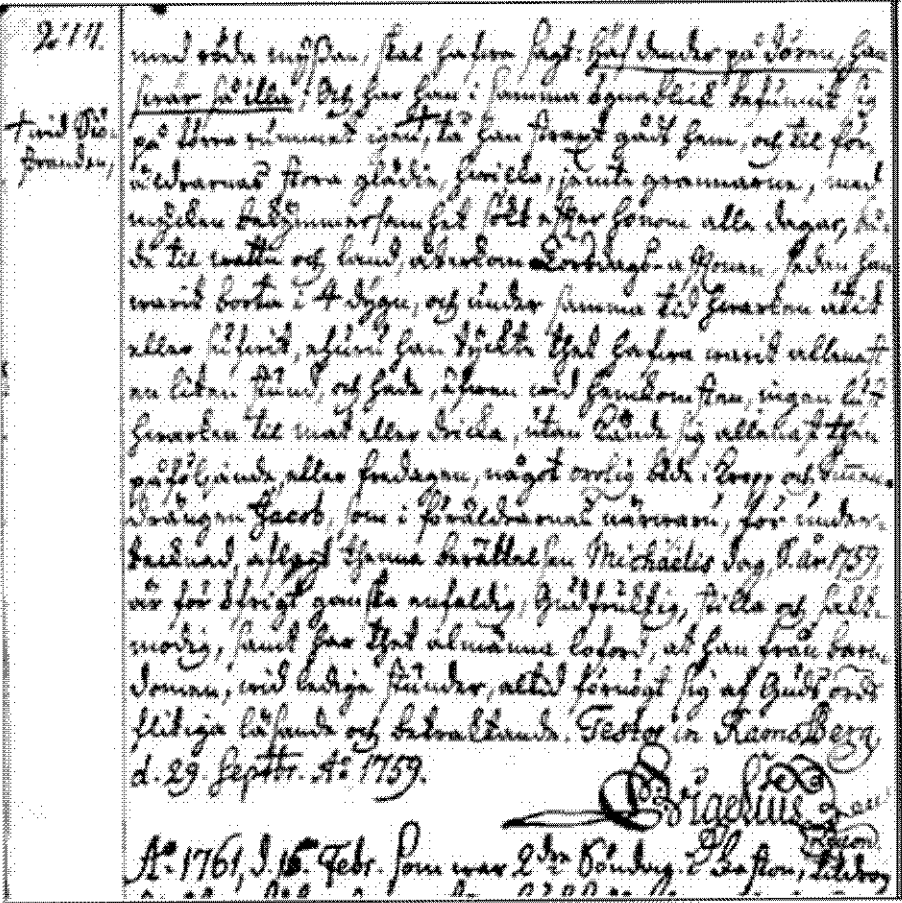 217.
med röda myßan, skal hafva sagt: haf dender på dören, han
svär så illa; Och har han i samma ögnablick befunnit sig
† vid Siö-
stranden,
på torra rummet igen, † tå han straxt gådt hem, och til för-
äldrarnas stora glädie, hvilka, jemte grannarne, med
mycken bekymmersamhet sökt efter honom alla dagar, bå-
de til wattn och land, återkom Lördags- Sedan han
warit borta i 4 dygn, och under samma tid hwarken ätit
eller sufvit, ehuru han tyckte thet hafva warit allenast
en liten stund, och hade, äfwen wid hemkomsten, ingen lust
hwarken til mat eller dricka, utan kände sig allenast then
påföljande, eller fredagen, något orolig både i kropp och
Drängen Jacob, som i föräldrarnas närwaru, för under-
tecknad, aflagt thenna berättelsen Michaelis dag, d. år 1759,
är för öfrigt ganska enfaldig, Gudfruktig, stilla och sakt-
modig, samt har thet almänna loford, at han från barn-
domen, wid lediga stunder, altid förnögt sig af Guds ords
flitiga läsande och betraktande. Testor in Ramsberg,
d. 29. Septbr. A:o 1759.
A:o 1761, d. 15. Febr. som war 2:dra Söndag. i Faston,